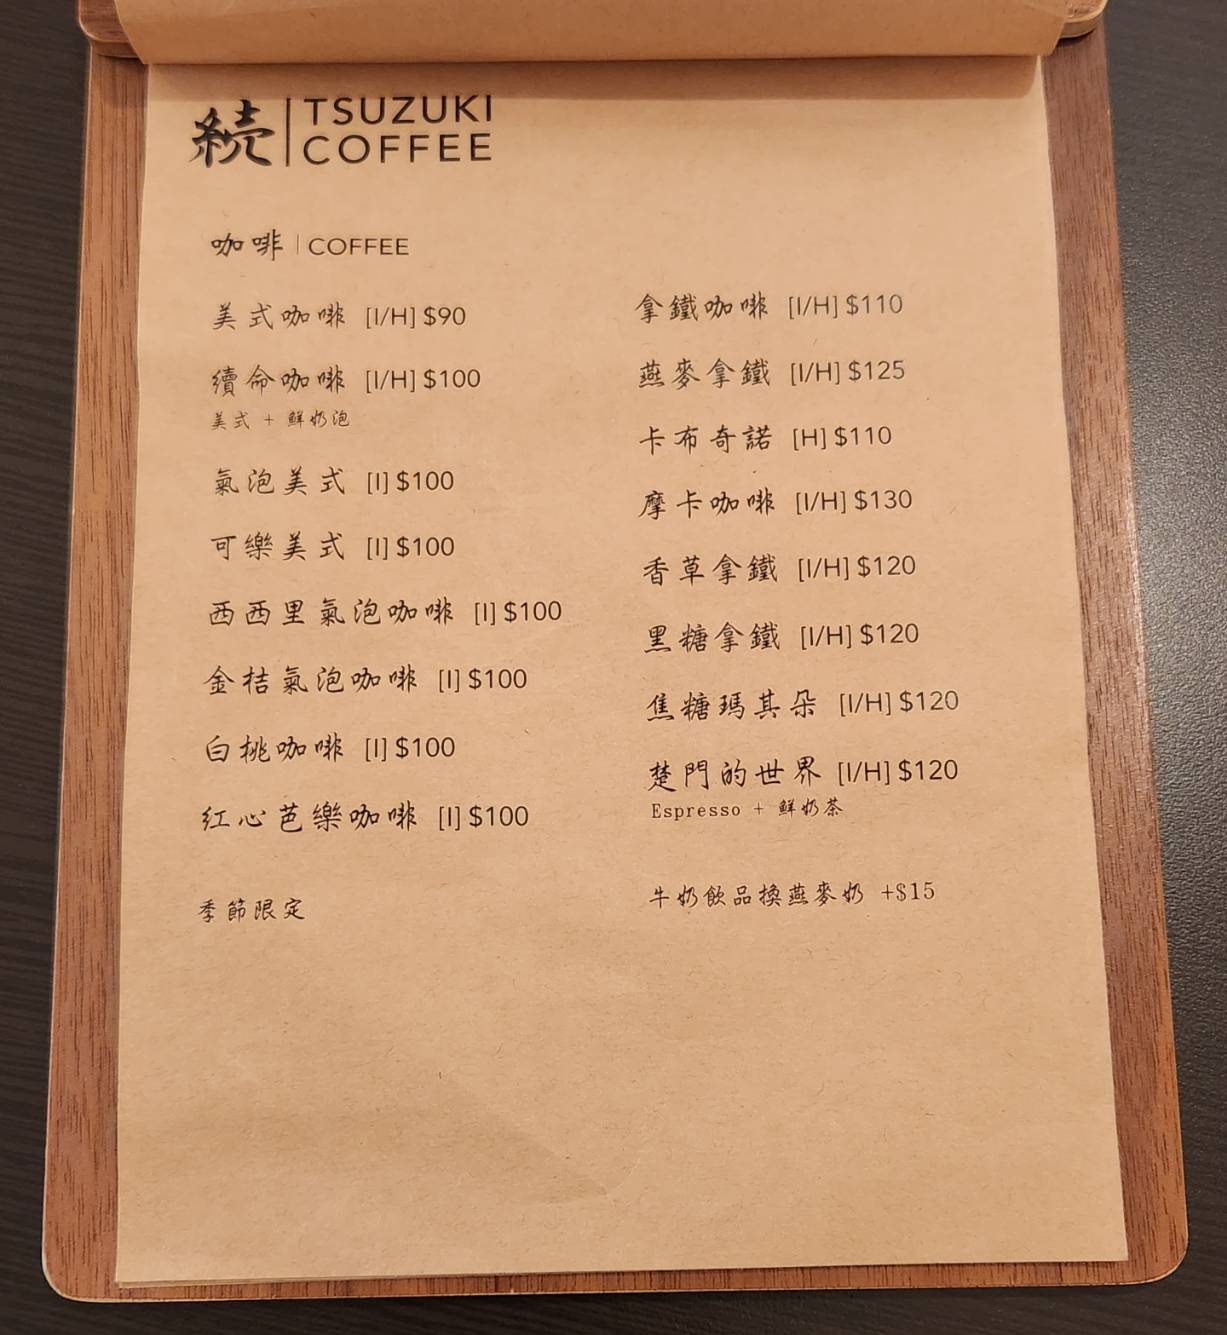 続 | TSUZUKI
COFFEE
咖啡 | COFFEE
美式咖啡 [I/H] $90
續命咖啡 [I/H] $100
美式 + 鮮奶泡
氣泡美式 [I] $100
可樂美式 [I] $100
西西里氣泡咖啡 [I] $100
金桔氣泡咖啡 [I] $100
白桃咖啡 [I] $100
紅心芭樂咖啡 [I] $100
季節限定
拿鐵咖啡 [I/H] $110
燕麥拿鐵 [I/H] $125
卡布奇諾 [H] $110
摩卡咖啡 [I/H] $130
香草拿鐵 [I/H] $120
黑糖拿鐵 [I/H] $120
焦糖瑪其朵 [I/H] $120
楚門的世界 [I/H] $120
Espresso + 鮮奶茶
牛奶飲品換燕麥奶 +$15